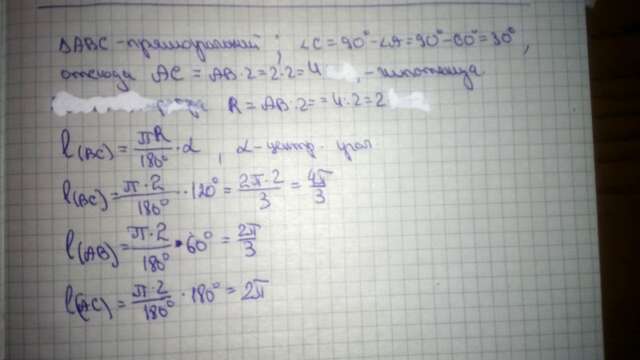 ΔABC - прямоугольный ; ∠C = 90° - ∠A = 90° - 60° = 30° ,
отсюда AC = AB · 2 = 2 · 2 = 4 - гипотенуза
R = AB · 2 = = 4 · 2 = 2
l(BC) = πR/180° · α , α - центр. угол
l(BC) = π · 2/180° · 120° = 2π · 2/3 = 4π/3
l(AB) = π · 2/180° · 60° = 2π/3
l(AC) = π · 2/180° · 180° = 2π